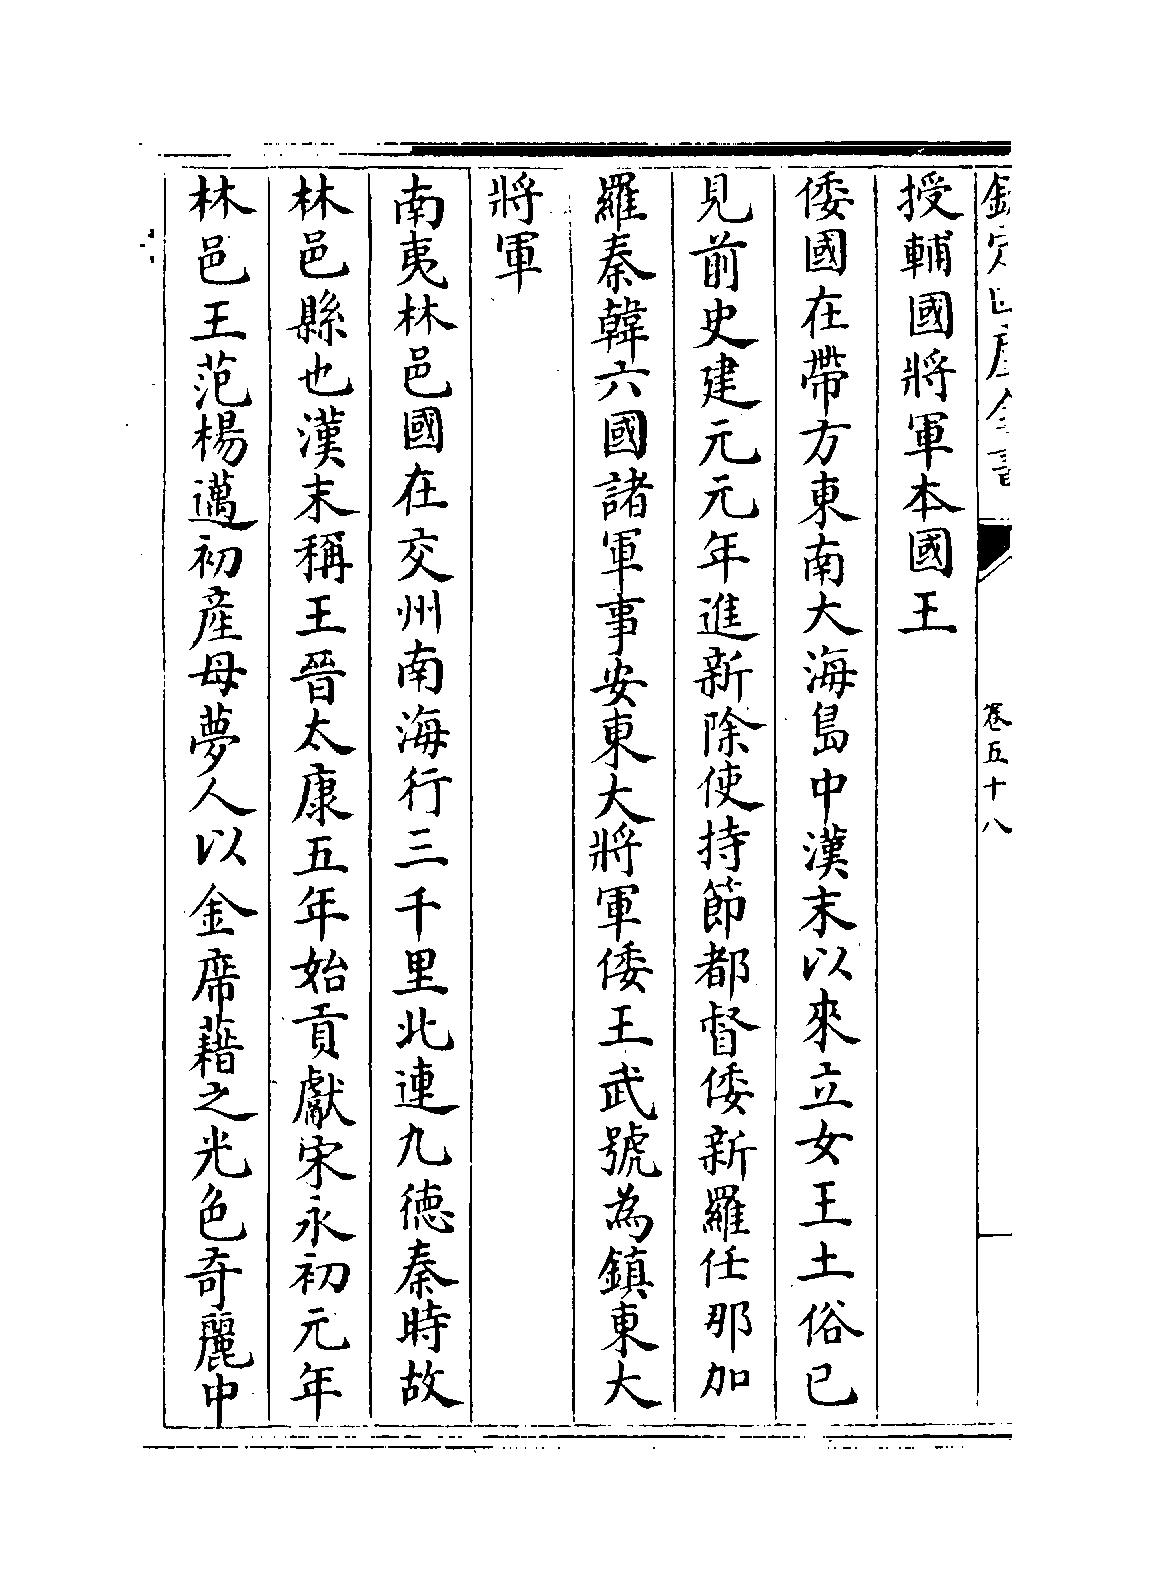 欽定四庫全書
卷五十八
授輔國將軍本國王
倭國在帶方東南大海島中漢末以來立女王土俗已
見前史建元元年進新除使持節都督倭新羅任那加
羅秦韓六國諸軍事安東大將軍倭王武號為鎮東大
將軍
南夷林邑國在交州南海行三千里北連九德秦時故
林邑縣也漢末稱王晉太康五年始貢獻宋永初元年
林邑王范楊邁初產母夢人以金席藉之光色奇麗中